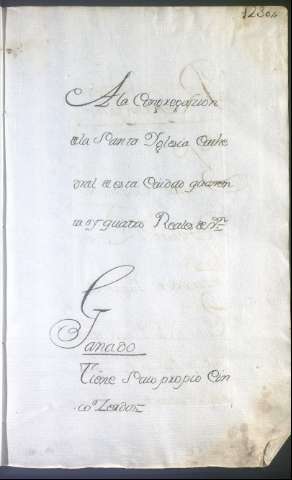 A la Congregacion
de la Santa Yglesia Cathe
dral de esta Ciudad quaren
ta y quatro Reales de Vn
Ganado
Tiene Suio propio Cin
co Zerdos